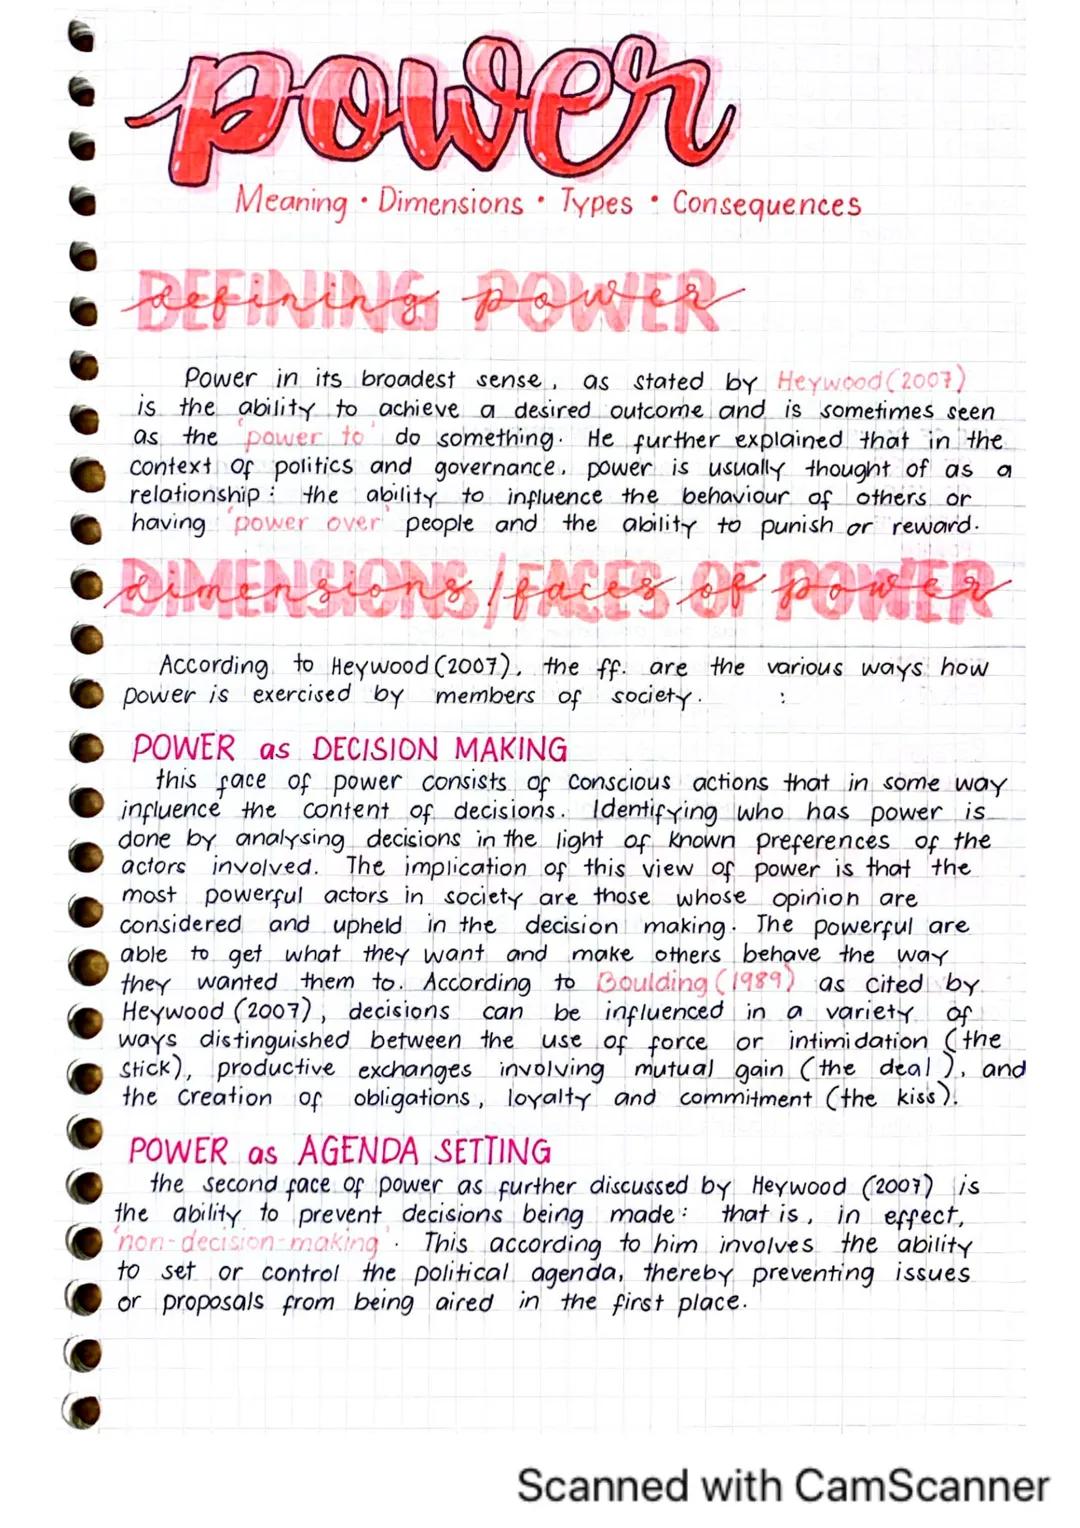 power
Meaning • Dimensions • Types • Consequences
DEFINING POWER
defining power
Power in its broadest sense, as stated by Heywood (2007)
is the ability to achieve a desired outcome and is sometimes seen
as the 'power to' do something. He further explained that in the
context of politics and governance, power is usually thought of as a
relationship: the ability to influence the behaviour of others or
having 'power over' people and the ability to punish or reward.
DIMENSIONS/FACES OF POWER
dimensions/faces of power
According to Heywood (2007), the ff. are the various ways how
power is exercised by members of society. :
POWER as DECISION MAKING
this face of power consists of conscious actions that in some way
influence the content of decisions. Identifying who has power is
done by analysing decisions in the light of known preferences of the
actors involved. The implication of this view of power is that the
most powerful actors in society are those whose opinion are
considered and upheld in the decision making. The powerful are
able to get what they want and make others behave the way
they wanted them to. According to Boulding (1989) as cited by
Heywood (2007), decisions can be influenced in a variety of
ways distinguished between the use of force or intimidation (the
stick), productive exchanges involving mutual gain (the deal), and
the creation of obligations, loyalty and commitment (the kiss).
POWER as AGENDA SETTING
the second face of power as further discussed by Heywood (2007) is
the ability to prevent decisions being made: that is, in effect,
'non-decision-making'. This according to him involves the ability
to set or control the political agenda, thereby preventing issues
or proposals from being aired in the first place.
Scanned with CamScanner